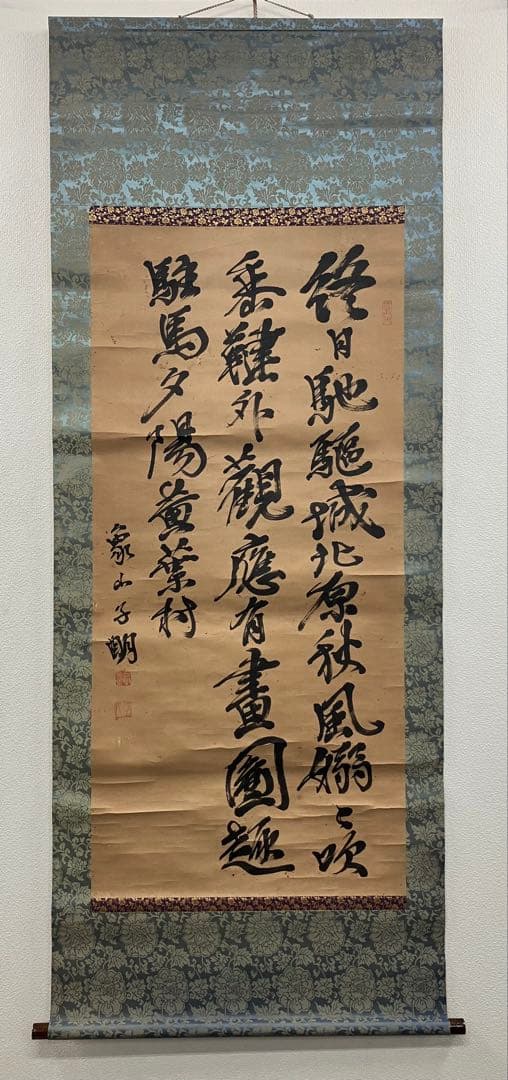 終日馳驅城北原秋風嫋〻吹
垂鞬外觀應有畫圖趣
駐馬夕陽黄葉村
象山子明